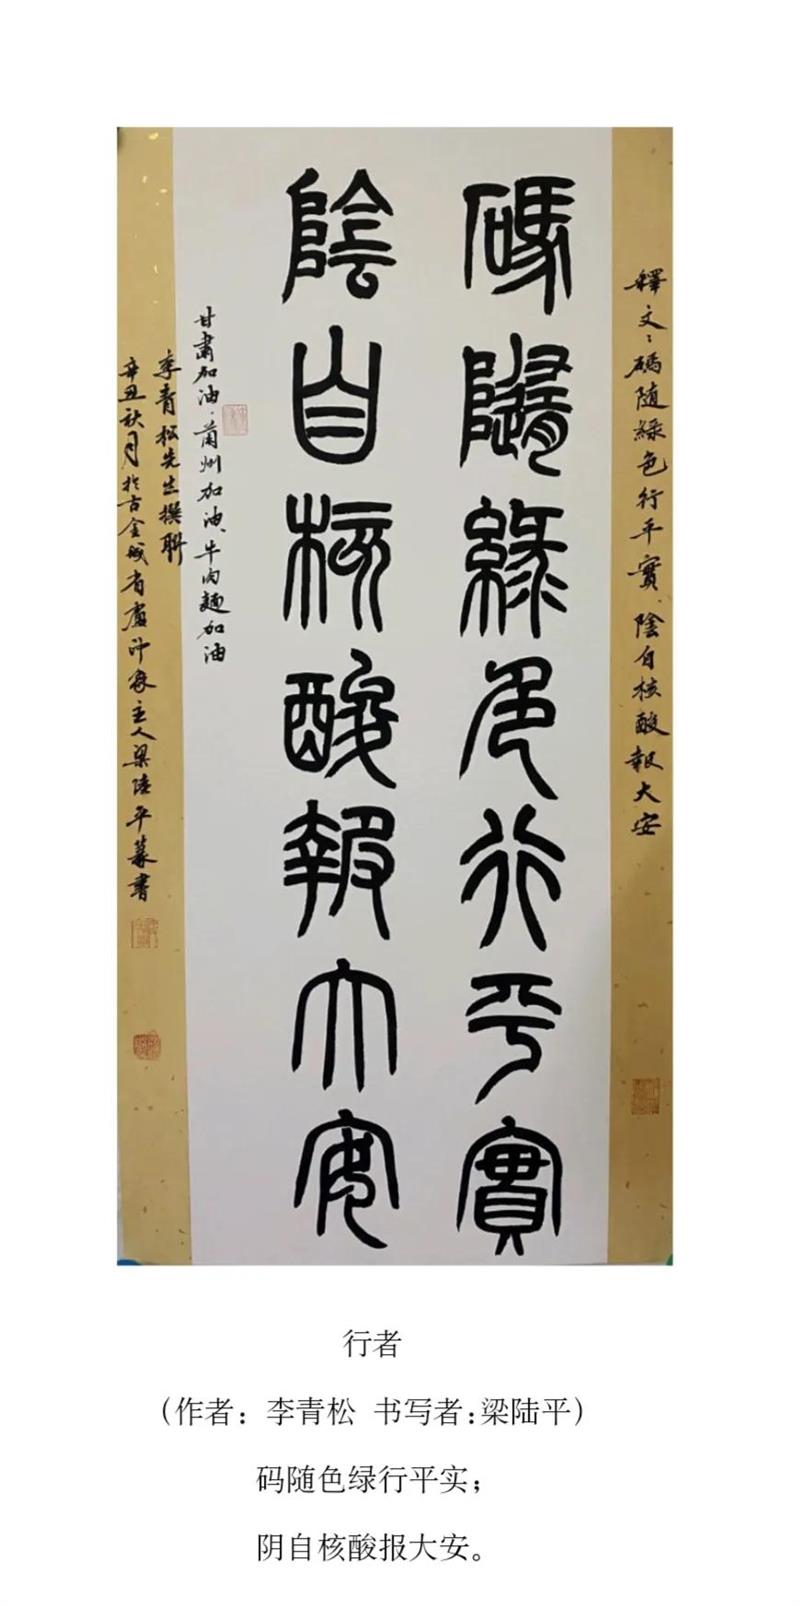 釋文：碼随綠色行平實、陰自核酸報大安
碼隨綠色行平實
陰自核酸報大安
甘肅加油、蘭州加油、牛肉麵加油
李青松先生撰聯
辛丑秋月於古金城省廬主人梁陸平篆書
行者
（作者：李青松 书写者:梁陆平）
码随色绿行平实；
阴自核酸报大安。